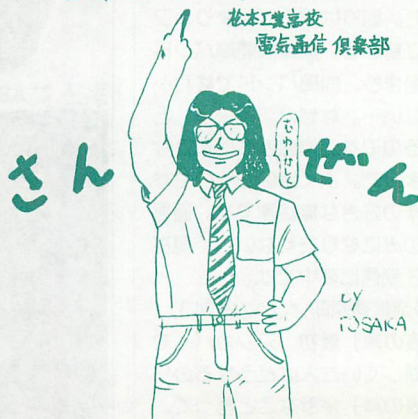 松本工業高校
電気通信倶楽部
さん
ぜん
by
TOSAKA